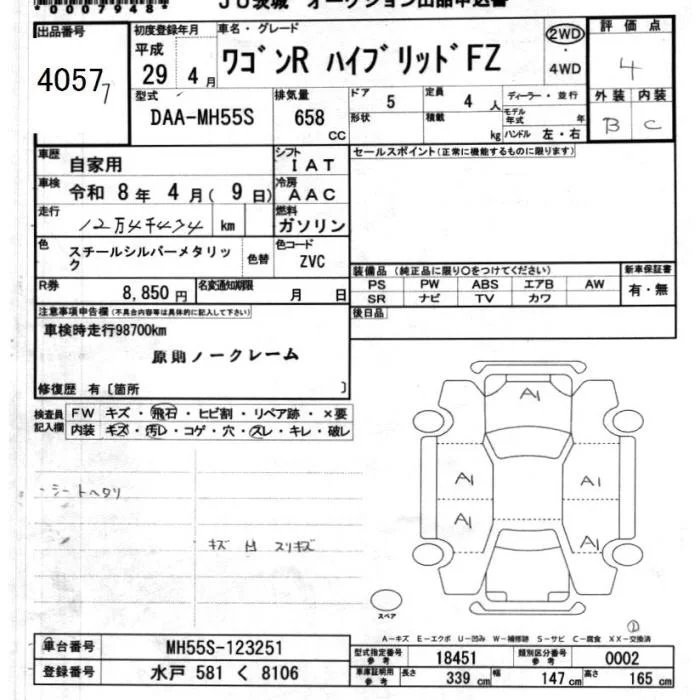 *0007948*
JU茨城 オークション出品申込書
出品番号
40577
初度登録年月
平成
29 4月
車名・グレード
ワゴンR ハイブリッドFZ
2WD
・
4WD
評価点
4
外装 内装
B C
型式
DAA-MH55S
排気量
658
CC
ドア
5
定員
4 人
形状
積載
kg
ディーラー・並行
モデル年式 年
ハンドル 左・右
車歴
自家用
シフト
IAT
車検
令和 8年 4月( 9日)
冷房
AAC
走行
12万4千434 km
燃料
ガソリン
色
スチールシルバーメタリック
色替
色コード
ZVC
R券
8,850円
名変通知期限
月 日
セールスポイント(正常に機能するものに限ります)
装備品 (純正品に限り〇をつけてください)
PS PW ABS エアB AW
SR ナビ TV カワ
新車保証書
有・無
後日品
注意事項申告欄(不具合内容等は具体的に記入して下さい)
車検時走行98700km
原則ノークレーム
修復歴 有〔箇所 〕
検査員記入欄
FW キズ・飛石・ヒビ割・リペア跡・×要
内装 キズ・汚レ・コゲ・穴・スレ・キレ・破レ
・シートヘタリ
キズ M スリキズ
A1
A1 A1
A1 A1
スペア
①
A-キズ E-エクボ U-凹み W-補修跡 S-サビ C-腐食 XX-交換済
車台番号
MH55S-123251
登録番号
水戸 581 く 8106
型式指定番号
参考
18451
類別区分番号
参考
0002
車庫証明用
参考
長さ 339 cm 幅 147 cm 高さ 165 cm